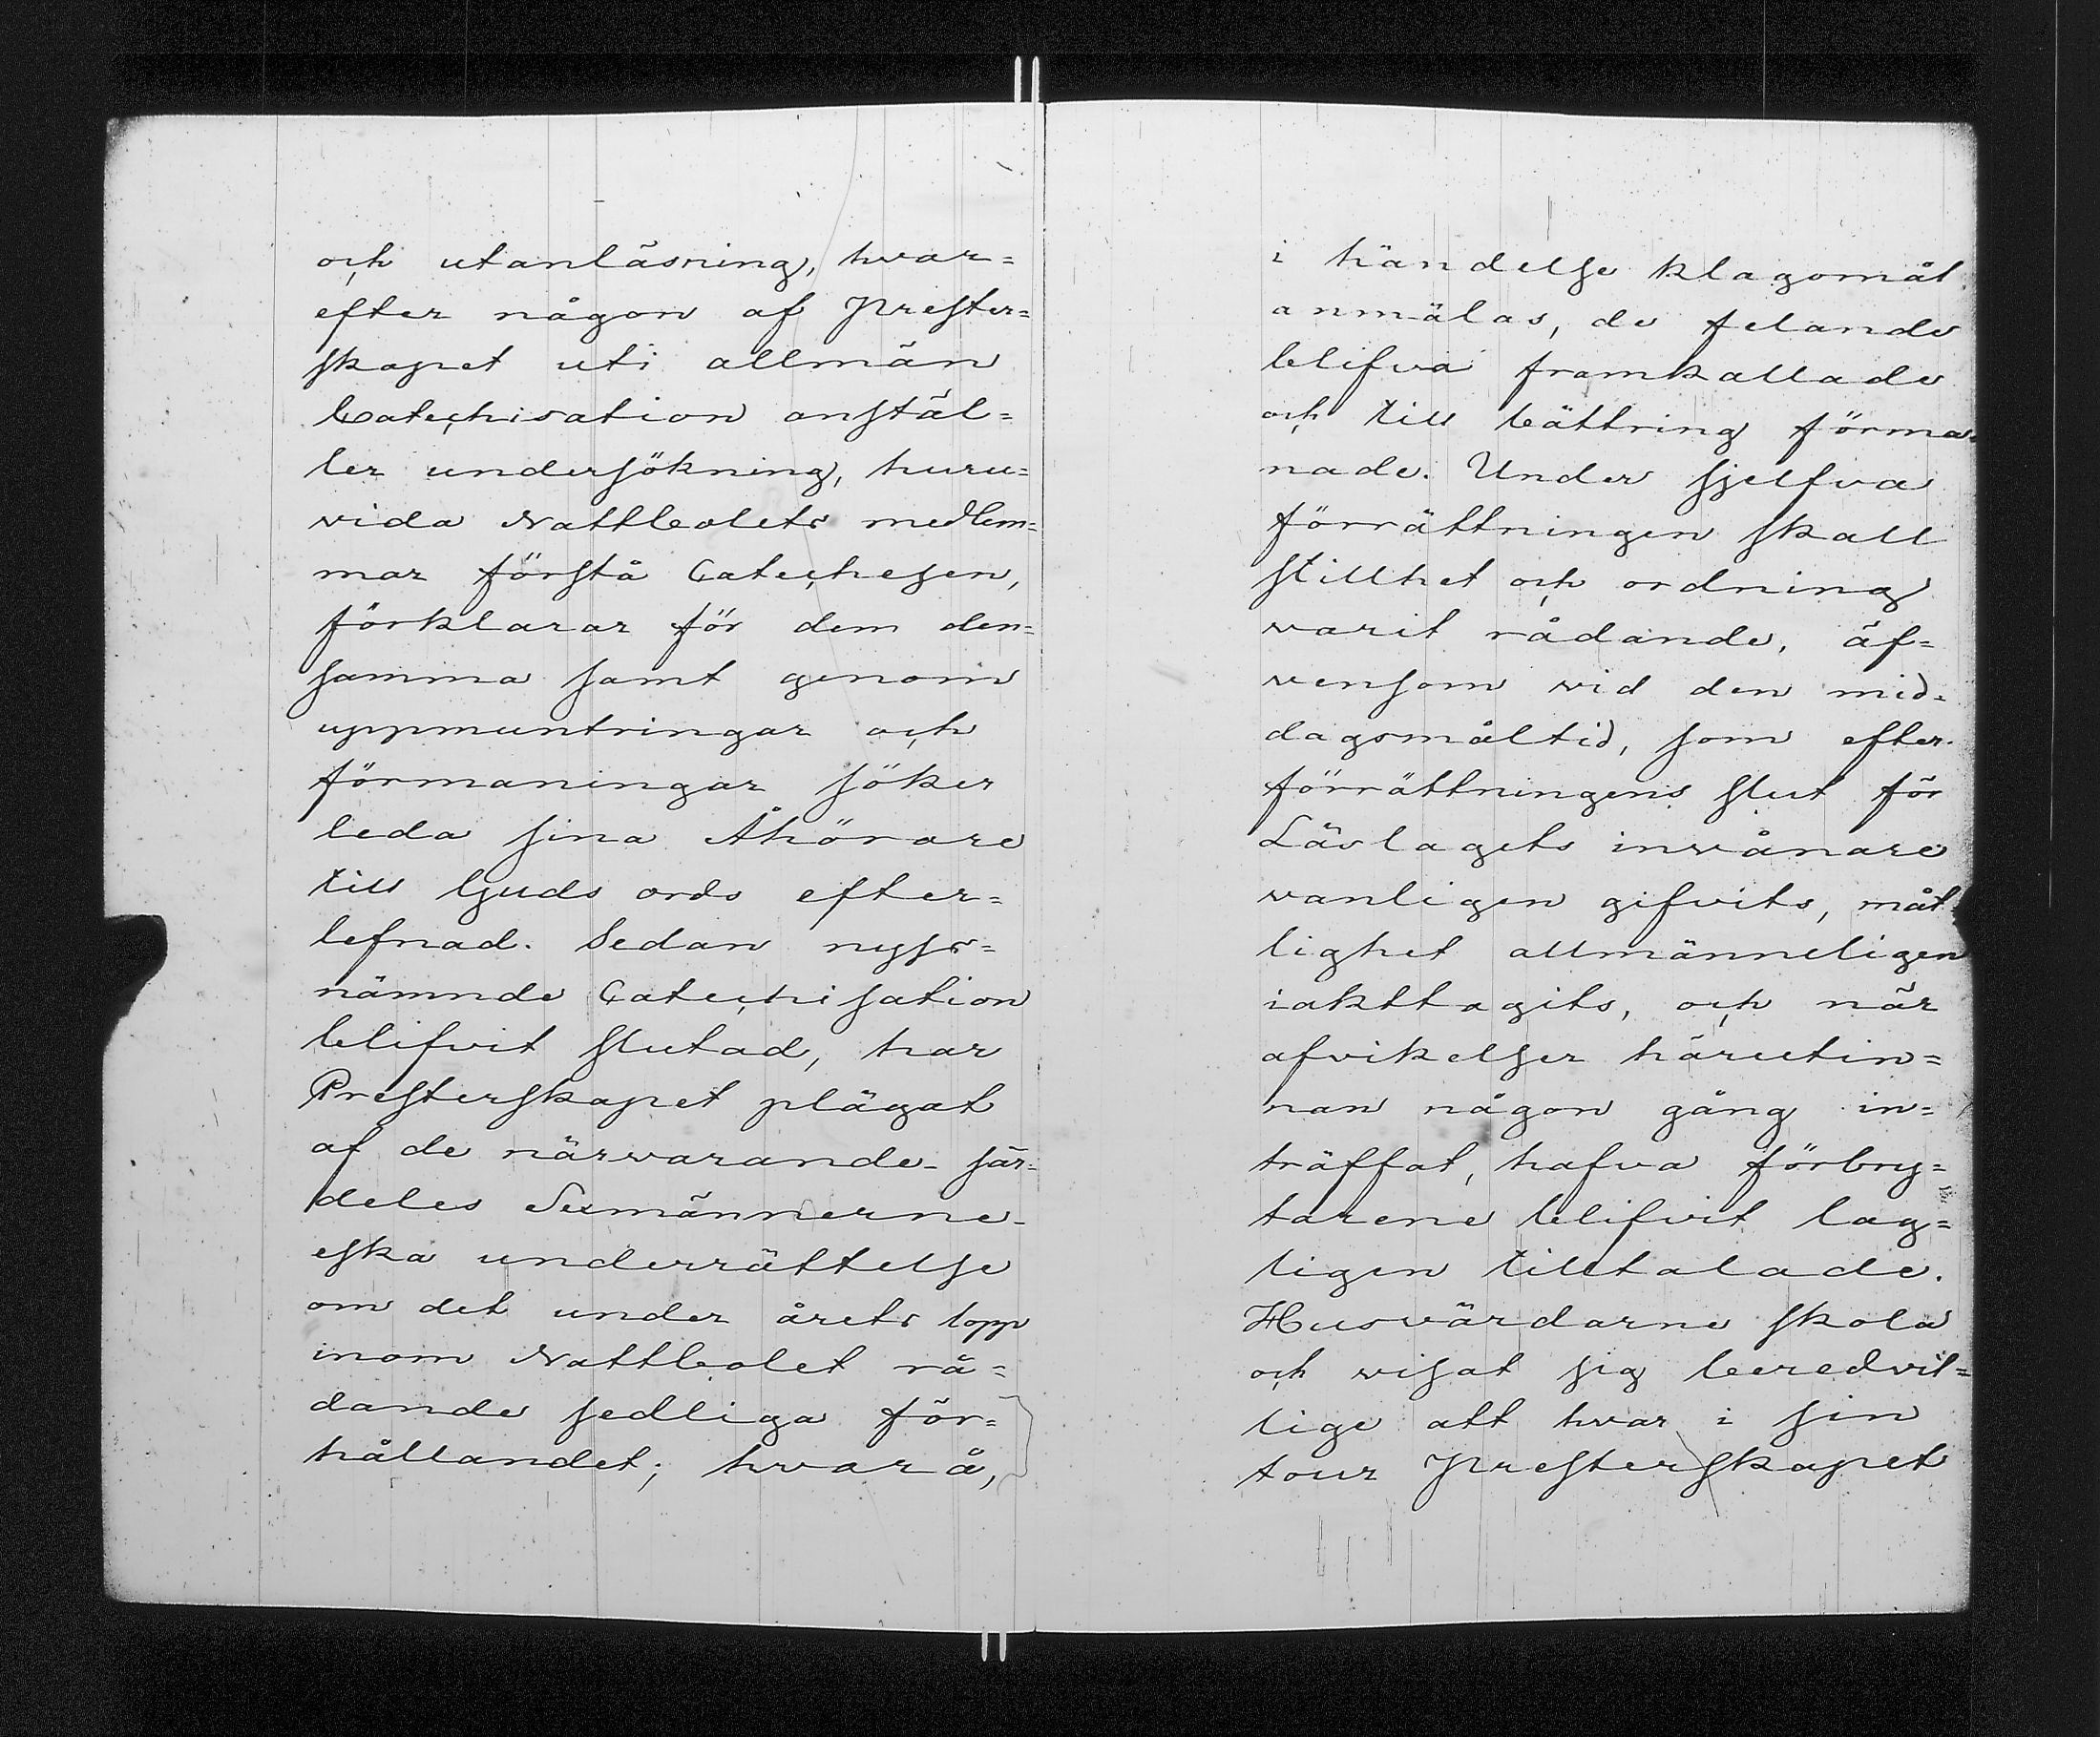 och utanläsning, hvar=
efter någon af Prester=
skapet uti allmän
Catechisation anstäl=
ler undersökning, huru=
vida Nattbolets medlem=
mar förstå Catechesen,
förklarar för dem den=
samma samt genom
uppmuntringar och
förmaningar söker
leda sina Åhörare
till Guds ords efter=
lefnad. Sedan nyss=
nämnde Catechisation
blifvit slutad, har
Presterskapet plägat
af de närvarande- sär=
deles Sexmännerne-
eska underrättelse
om det under årets lopp
inom Nattbolet rå=
dande sedliga för=
hållandet; hvarå,
i händelse klagomål
anmälas, de felande
blifva framkallade
och till bättring förma=
nade. Under sjelfva
förrättningen skall
stillhet och ordning
varit rådande, äf=
vensom vid den mid=
dagsmåltid, som efter
förrättningens slut för
Läslagets invånare
vanligen gifvits, måt
lighet allmänneligen
iakttagits, och när
afvikelser härutin=
nan någon gång in=
träffat, hafva förbry=
tarene blifvit lag=
ligen tilltalade.
Husvärdarne skola
och visat sig beredvil=
lige att hvar i sin
tour Presterskapet